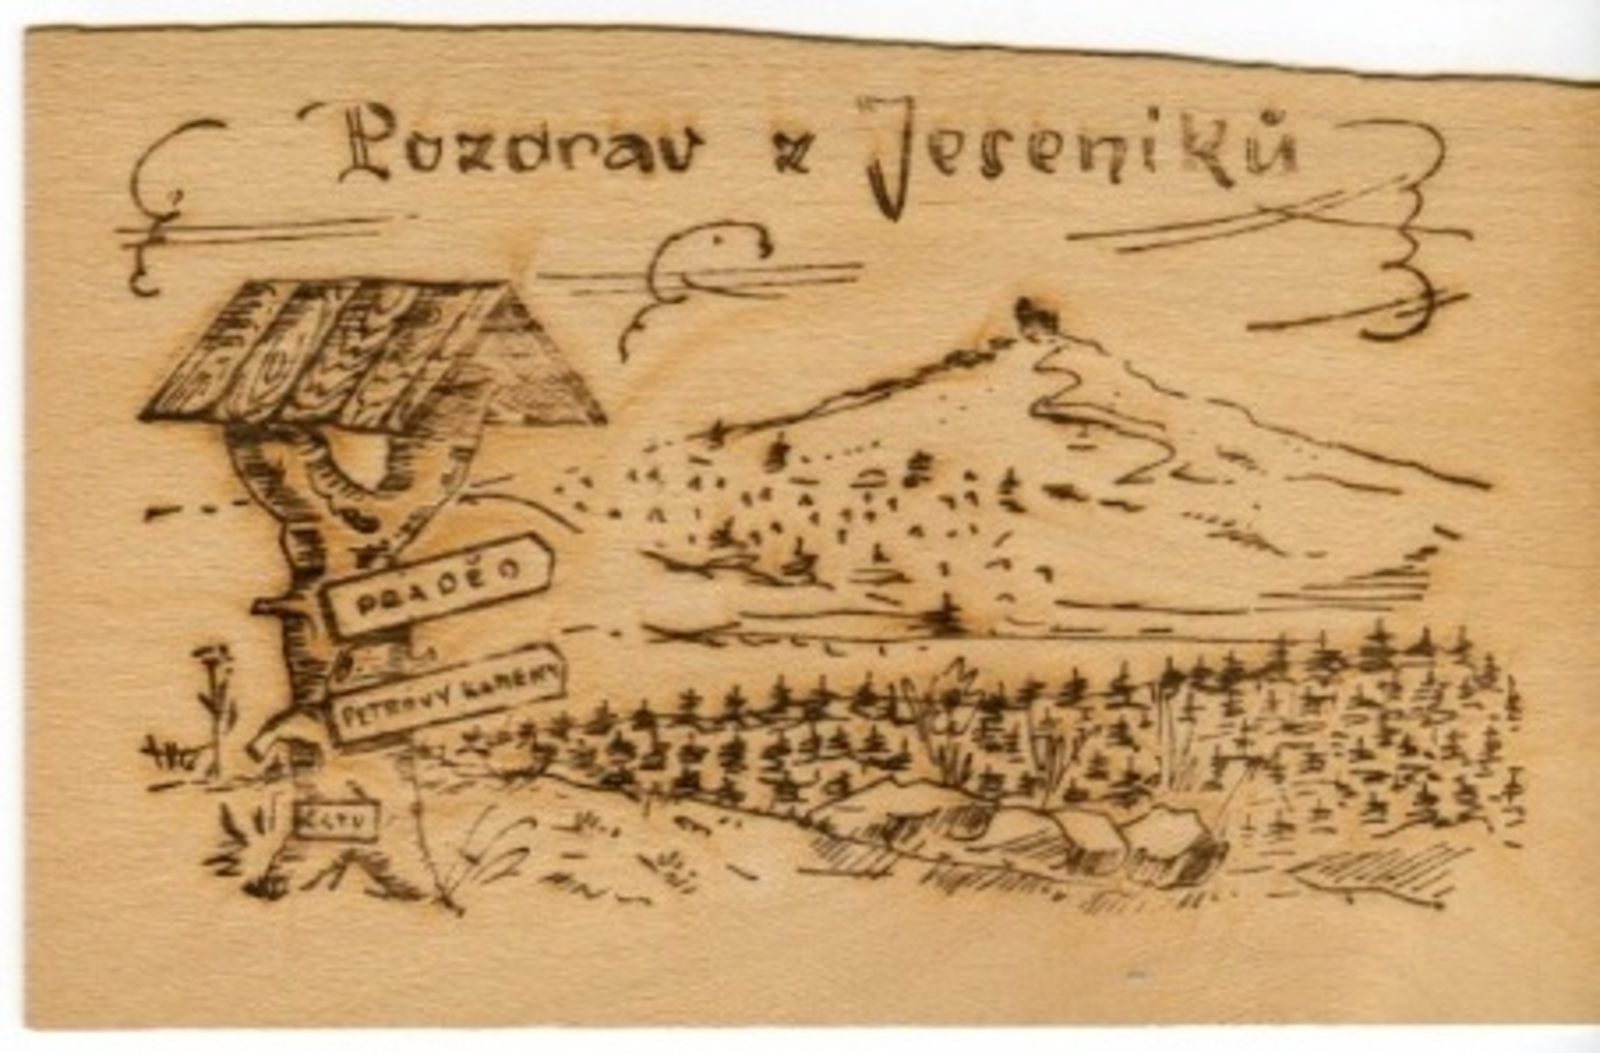 Pozdrav z Jeseniků
PRADĚD
PETROVY KAMENY